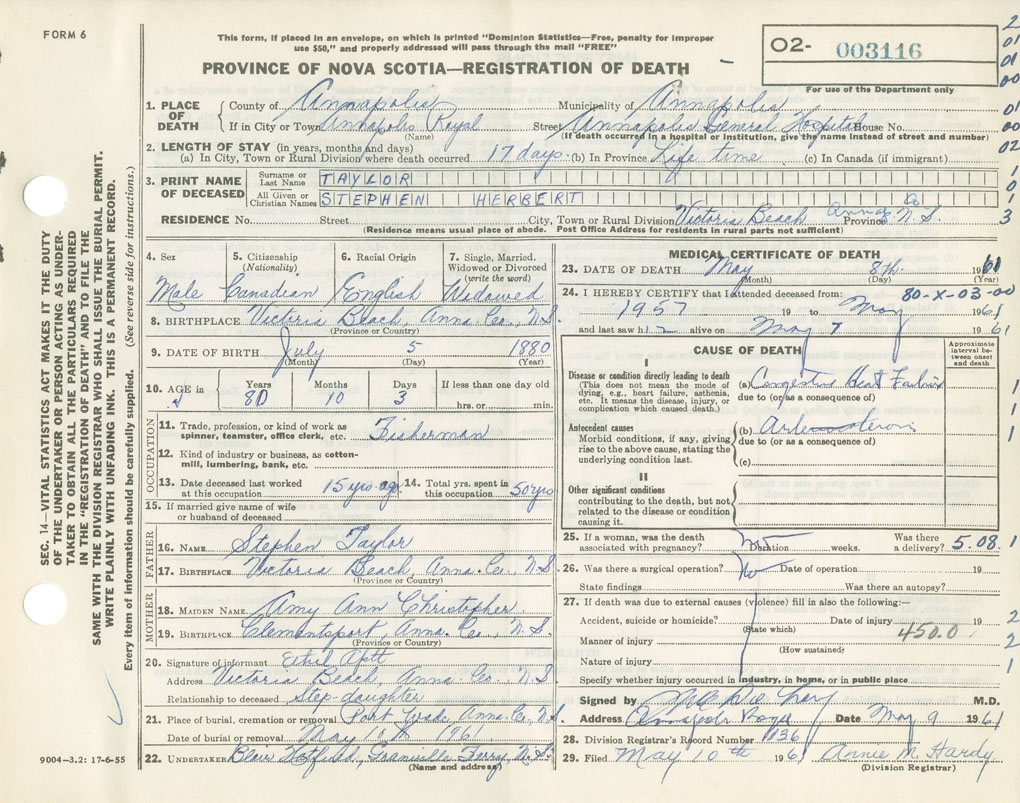 FORM 6
This form, if placed in an envelope, on which is printed "Dominion Statistics—Free, penalty for improper
use $50," and properly addressed will pass through the mail "FREE"
O2- 003116
For use of the Department only
PROVINCE OF NOVA SCOTIA—REGISTRATION OF DEATH
1. PLACE OF DEATH County of Annapolis Municipality of Annapolis
If in City or Town Annapolis Royal Street Annapolis General Hospital House No.
(Name) (If death occurred in a hospital or institution, give the name instead of street and number)
2. LENGTH OF STAY (in years, months and days)
(a) In City, Town or Rural Division where death occurred 17 days (b) In Province Life time (c) In Canada (if immigrant)
3. PRINT NAME OF DECEASED Surname or Last Name TAYLOR
All Given or Christian Names STEPHEN HERBERT
RESIDENCE No. Street City, Town or Rural Division Victoria Beach Anna. Co Province N.S.
(Residence means usual place of abode. Post Office Address for residents in rural parts not sufficient)
4. Sex Male
5. Citizenship (Nationality) Canadian
6. Racial Origin English
7. Single, Married, Widowed or Divorced (write the word) Widowed
8. BIRTHPLACE Victoria Beach, Anna. Co., N.S.
(Province or Country)
9. DATE OF BIRTH July 5 1880
(Month) (Day) (Year)
10. AGE in Years 80 Months 10 Days 3 If less than one day old hrs. or min.
OCCUPATION
11. Trade, profession, or kind of work as spinner, teamster, office clerk, etc. Fisherman
12. Kind of industry or business, as cotton-mill, lumbering, bank, etc.
13. Date deceased last worked at this occupation 15 yrs ago
14. Total yrs. spent in this occupation 50 yrs
15. If married give name of wife or husband of deceased
FATHER
16. NAME Stephen Taylor
17. BIRTHPLACE Victoria Beach, Anna. Co., N.S.
(Province or Country)
MOTHER
18. MAIDEN NAME Amy Ann Christopher
19. BIRTHPLACE Clementsport, Anna. Co., N.S.
(Province or Country)
20. Signature of informant Ethel Apt
Address Victoria Beach, Anna. Co., N.S.
Relationship to deceased Step daughter
21. Place of burial, cremation or removal Port Wade, Anna. Co., N.S.
Date of burial or removal May 10th 1961
22. UNDERTAKER Blair Hatfield, Granville Ferry N.S.
(Name and address)
MEDICAL CERTIFICATE OF DEATH
23. DATE OF DEATH May 8th 1961
(Month) (Day) (Year)
24. I HEREBY CERTIFY that I attended deceased from: 80-X-03-00
1957 19 to May 1961
and last saw h alive on May 7 1961
CAUSE OF DEATH
Approximate interval between onset and death
I
Disease or condition directly leading to death
(This does not mean the mode of dying, e.g., heart failure, asthenia, etc. It means the disease, injury, or complication which caused death.)
(a) Congestive Heart Failure
due to (or as a consequence of)
Antecedent causes
Morbid conditions, if any, giving rise to the above cause, stating the underlying condition last.
(b)
due to (or as a consequence of)
(c)
II
Other significant conditions
contributing to the death, but not related to the disease or condition causing it.
25. If a woman, was the death associated with pregnancy? Duration weeks. Was there a delivery? 5.08 1
26. Was there a surgical operation? No Date of operation 19
State findings Was there an autopsy?
27. If death was due to external causes (violence) fill in also the following:—
Accident, suicide or homicide? Date of injury 19
(State which) 450.0
Manner of injury
(How sustained)
Nature of injury
Specify whether injury occurred in industry, in home, or in public place
Signed by M.D.
Address Annapolis Royal Date May 9 1961
28. Division Registrar's Record Number 1036
29. Filed May 10th 1961 Annie M. Hardy
(Division Registrar)
SEC. 14—VITAL STATISTICS ACT MAKES IT THE DUTY
OF THE UNDERTAKER OR PERSON ACTING AS UNDER-
TAKER TO OBTAIN ALL THE PARTICULARS REQUIRED
IN THE "REGISTRATION OF DEATH" AND TO FILE THE
SAME WITH THE DIVISION REGISTRAR WHO SHALL ISSUE THE BURIAL PERMIT.
WRITE PLAINLY WITH UNFADING INK. THIS IS A PERMANENT RECORD.
Every item of information should be carefully supplied. (See reverse side for instructions.)
9004—3.2: 17-6-55